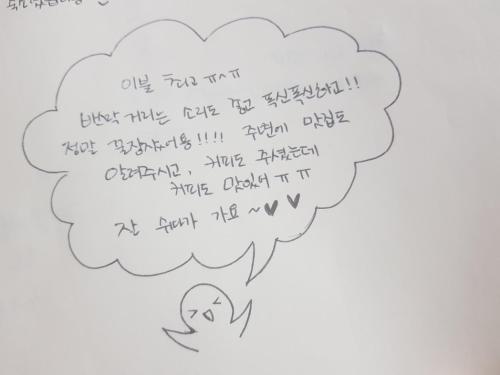 이불 최고 ㅠ^ㅠ
바스락 거리는 소리도 좋고 폭신폭신하고!!
정말 꿀잠잤어용!!!! 주변에 맛집도
알려주시고, 커피도 주셨는데
커피도 맛있어 ㅠㅠ
잘 쉬다가 가요~♥♥